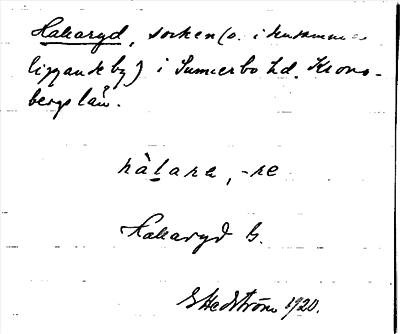 Hallaryd, socken (o. i densamma
liggande by) i Sunnerbo hd. Krono-
bergs län.
hàlara, -re
Hallaryd G.
G Hedström 1920.